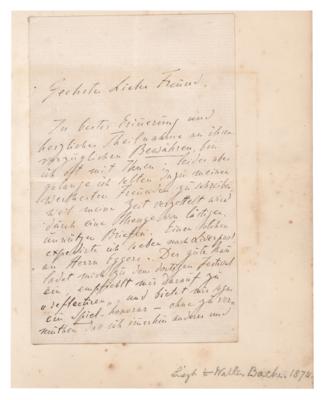 Geehrter Lieber Freund,
In bester Erinnerung und
herzlicher Theilnahme an ihren
vorzüglichen Bewähren, bin
ich oft mit Ihnen; leider aber
gelange ich selten dazu meinen
werthesten Freunden zu schreiben
weil meine Zeit vergeudet wird
durch eine Menge von lästigen,
unnützen Briefen. Einen solchen
expedirte ich soeben nach Liverpool
an Herrn Eggers. Der gute Mann
ladet mich zu dem dortigen festival
ein, empfiehlt mir darauf zu
"reflectiren", und bietet mir sogar
ein Spiel-honorar – ohne zu ver-
muthen das ich immerhin anderes und
Liszt to Walter Bache. 1874.